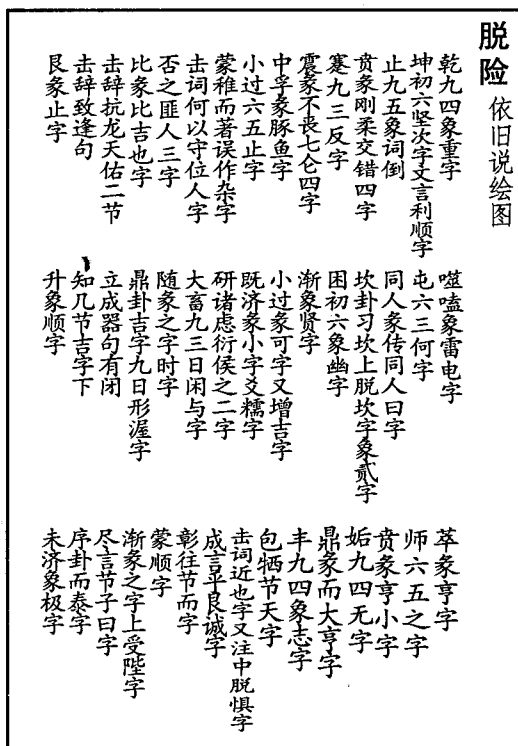 脱险 依旧说绘图
乾九四象重字
坤初六坚次字文言利顺字
止九五象词倒
贲彖刚柔交错四字
蹇九三反字
震彖不丧七仑四字
中孚彖豚鱼字
小过六五止字
蒙稚而著误作杂字
击词何以守位人字
否之匪人三字
比象比吉也字
击辞抗龙天佑二节
击辞致逢句
艮象止字
噬嗑象雷电字
屯六三何字
同人彖传同人曰字
坎卦习坎上脱坎字象贰字
困初六象幽字
渐象贤字
小过象可字又增吉字
既济彖小字爻糯字
研诸虑衍侯之二字
大畜九三日闲与字
随彖之字时字
鼎卦吉字九日形渥字
立成器句有闭
知几节吉字下
升象顺字
萃彖亨字
师六五之字
贲彖亨小字
姤九四无字
鼎彖而大亨字
丰九四象志字
包牺节天字
击词近也字又注中脱惧字
成言平艮诚字
彰往节而字
蒙顺字
渐彖之字上受陛字
尽言节子曰字
序卦而泰字
未济象极字